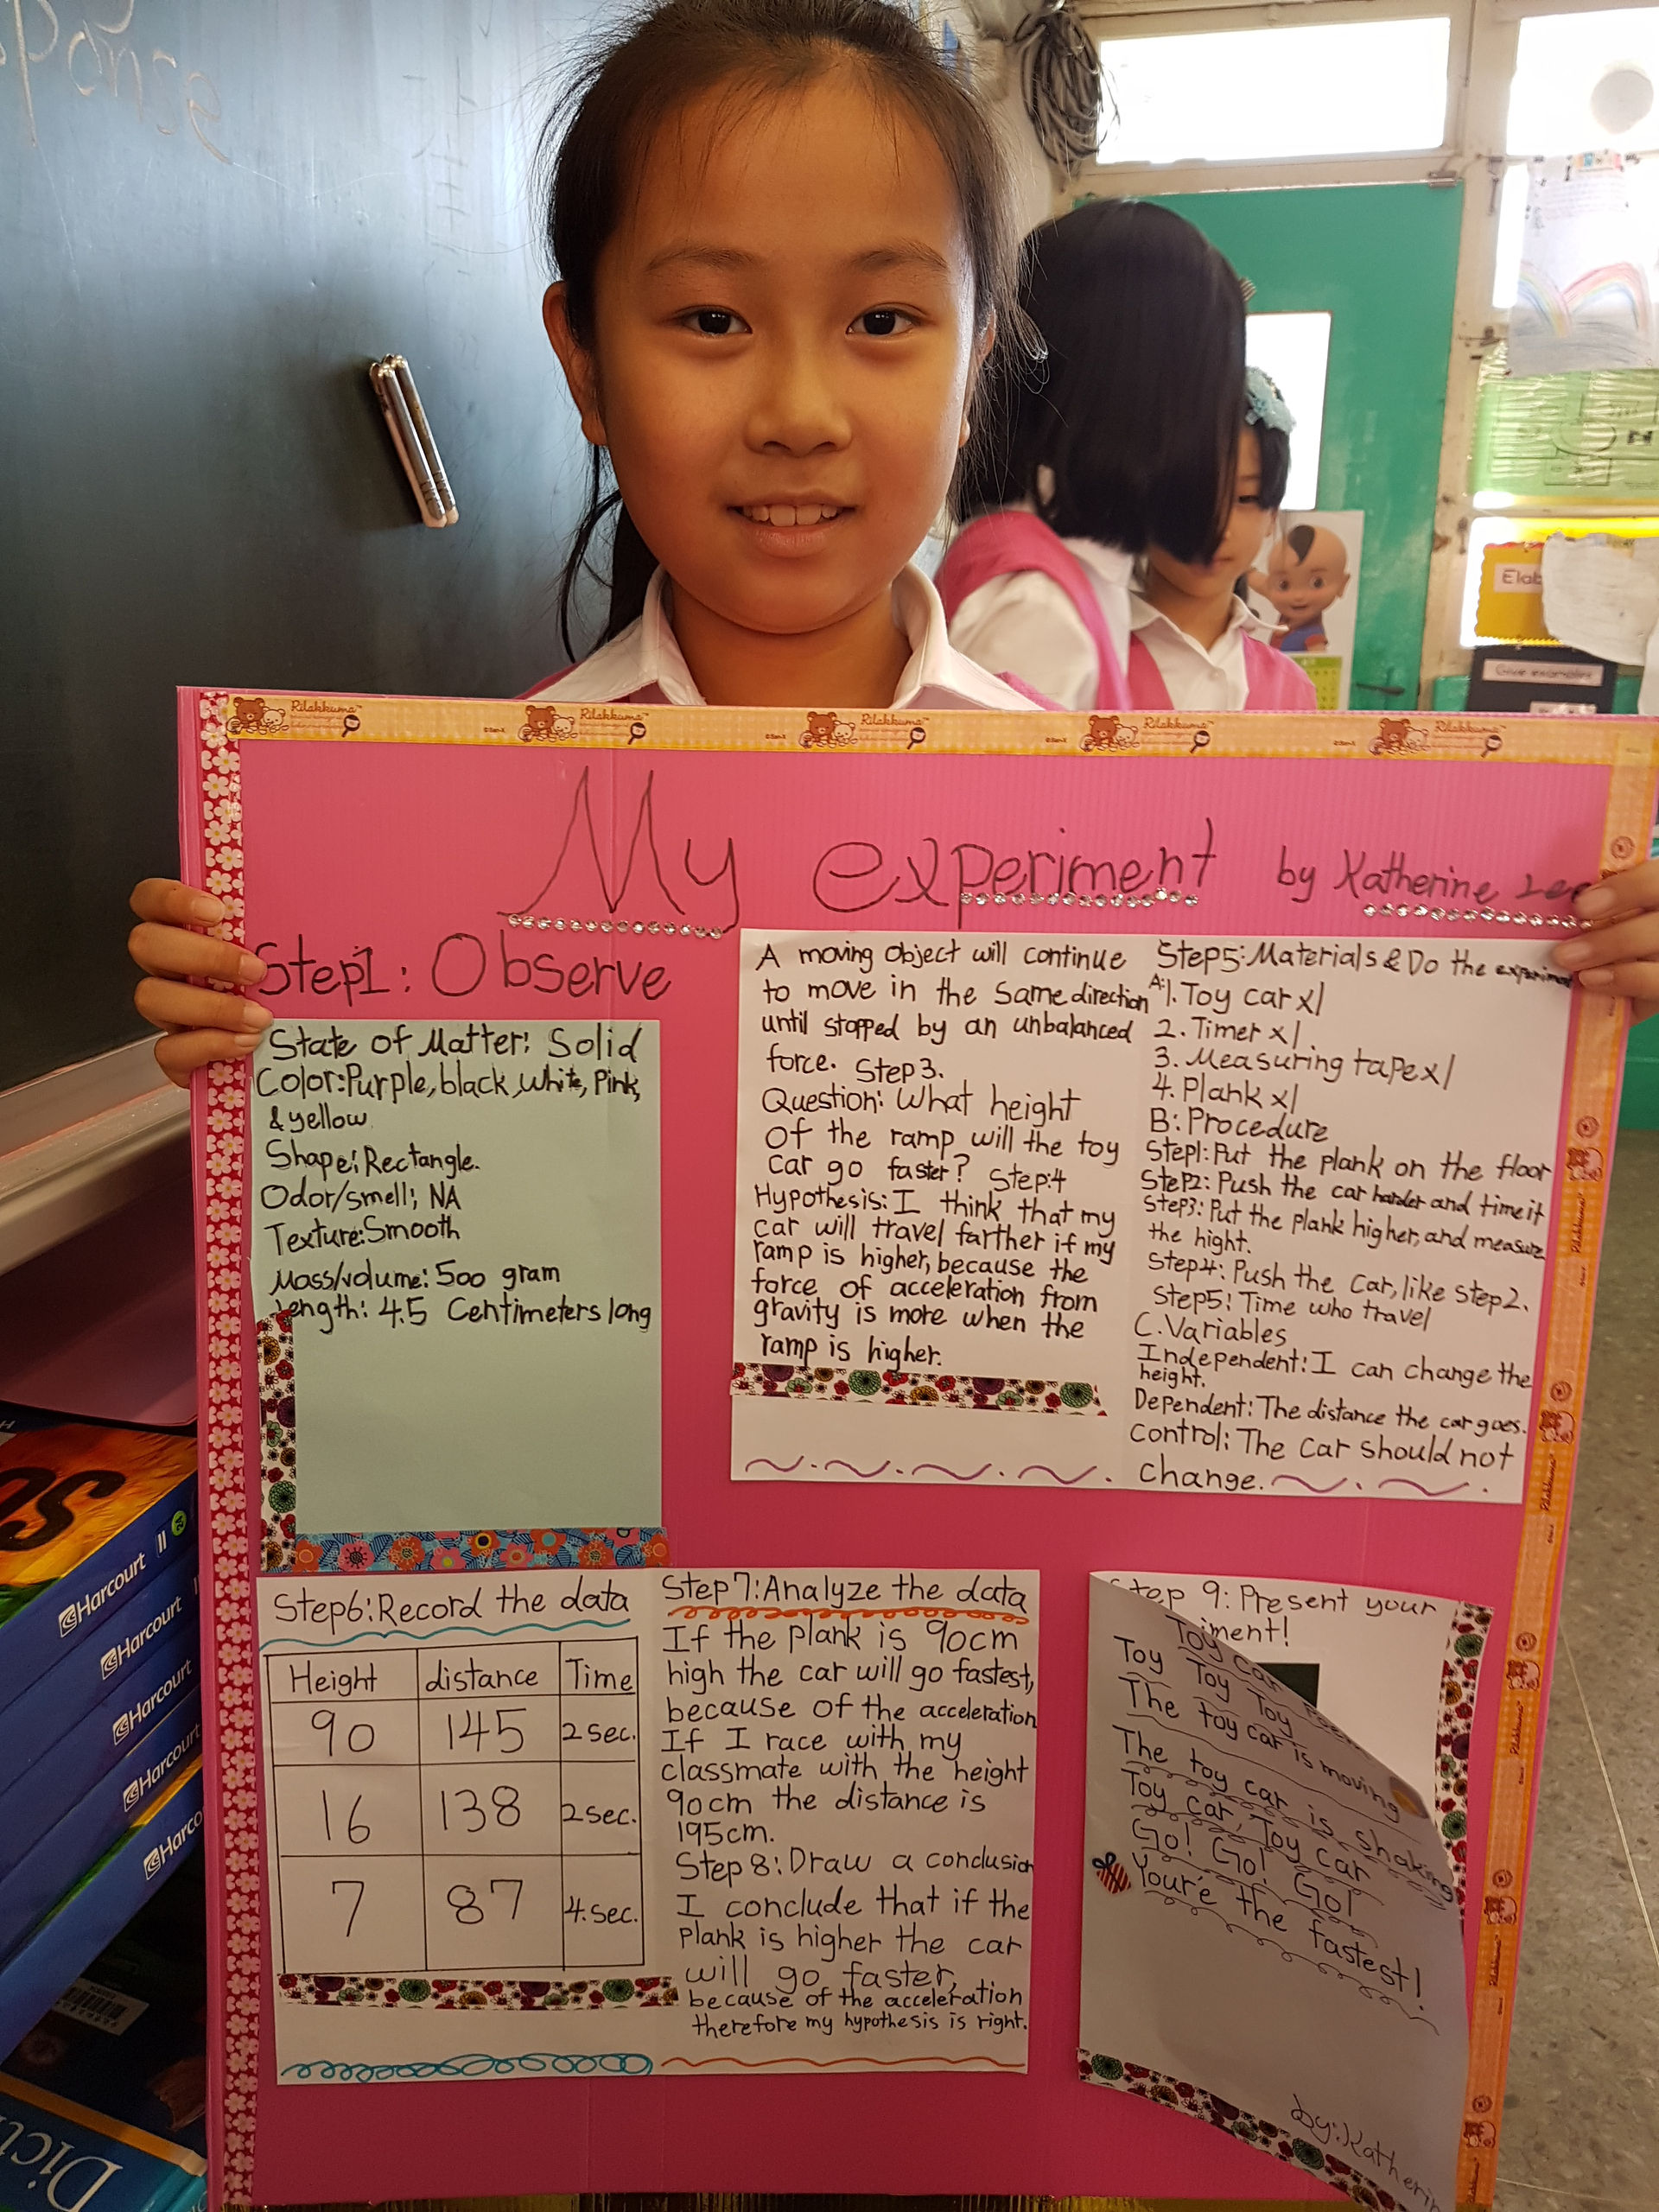 ponse
Rilakkuma
Rilakkuma
Rilakkuma
Rilakkuma
Rilakkuma
My experiment by Katherine Lee
Step1: Observe
State of Matter: Solid
Color:Purple, black, white, Pink,
& yellow
Shape: Rectangle.
Odor/smell; NA
Texture:Smooth
Mass/volume: 500 gram
Length: 4.5 Centimeters long
A moving object will continue
to move in the same direction
until stopped by an unbalanced
force. Step 3.
Question: What height
of the ramp will the toy
car go faster? Step:4
Hypothesis: I think that my
car will travel farther if my
ramp is higher, because the
force of acceleration from
gravity is more when the
ramp is higher.
Step5: Materials & Do the experiment
A: 1. Toy car x1
2. Timer x1
3. Measuring tape x1
4. Plank x1
B: Procedure
Step1: Put the plank on the floor
Step2: Push the car harder and time it
Step3: Put the plank higher, and measure
the hight.
Step4: Push the car, like step2.
Step5: Time who travel
C. Variables
Independent: I can change the
height.
Dependent: The distance the car goes.
Control: The car should not
change.
Step6: Record the data
Height distance Time
90 145 2 sec.
16 138 2 sec.
7 87 4. sec.
Step7: Analyze the data
If the plank is 90cm
high the car will go fastest,
because of the acceleration
If I race with my
classmate with the height
90cm the distance is
195cm.
Step 8: Draw a conclusion
I conclude that if the
plank is higher the car
will go faster,
because of the acceleration
therefore my hypothesis is right.
Step 9: Present your
iment!
Toy car
Toy Toy Toy
The toy car is moving
The toy car is shaking
Toy car, Toy car
Go! Go! Go!
Your'e the fastest!
by: Katherin
Harcourt
Harcourt
Harcourt
Harcourt
Harco
Dict
Elab
Give examples